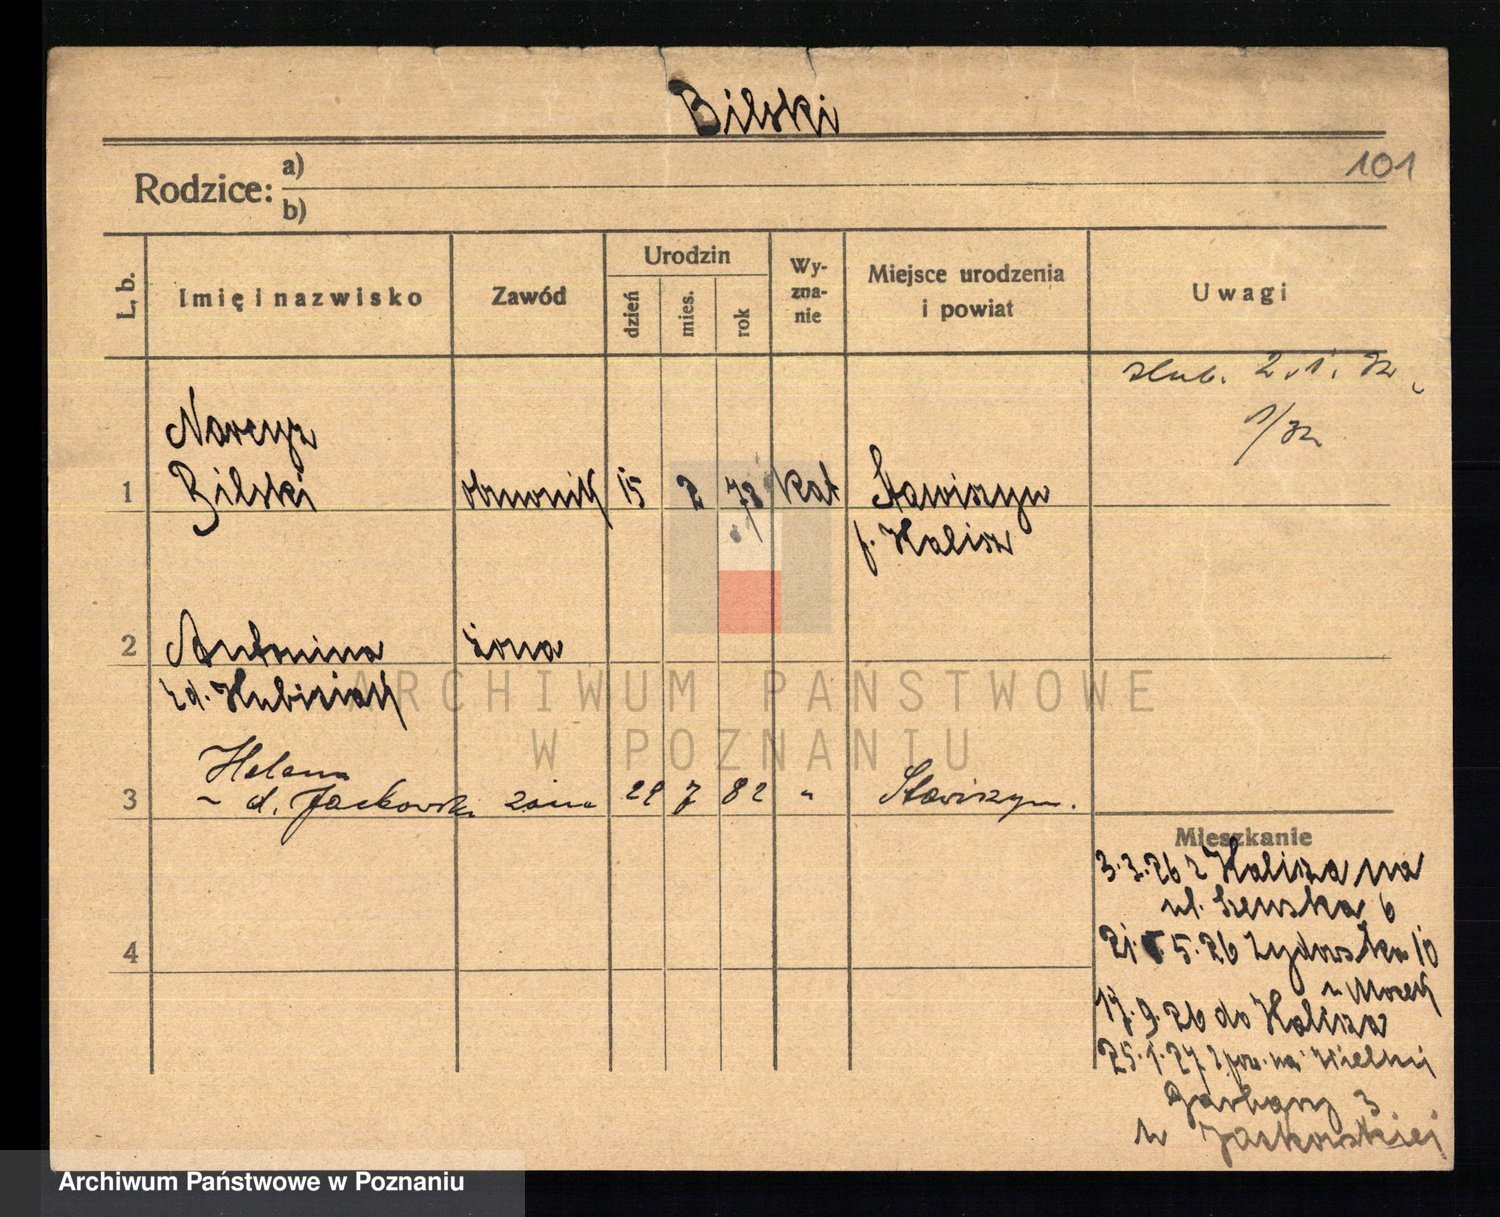 Bilski
101
Rodzice: a)
b)
L. b.
Imię i nazwisko
Zawód
Urodzin
dzień
mies.
rok
Wy-
zna-
nie
Miejsce urodzenia
i powiat
Uwagi
2. 1. 32
1/32
Narcyz
1 Bilski 15 2 78 kat Stawiszyn
p. Kalisz
2 Antonina żona
Helena
3 d. Jackowska żona 29 7 82 " Stawiszyn.
4
Mieszkanie
3.3.26 z Kalisza na
ul. Szewska 6
21. 5. 26 Żydowska 10
17. 9. 26 do Kalisza
25. 1. 27 na Wielkie
Garbary 3
u Jackowskiej
ARCHIWUM PAŃSTWOWE
W POZNANIU
Archiwum Państwowe w Poznaniu